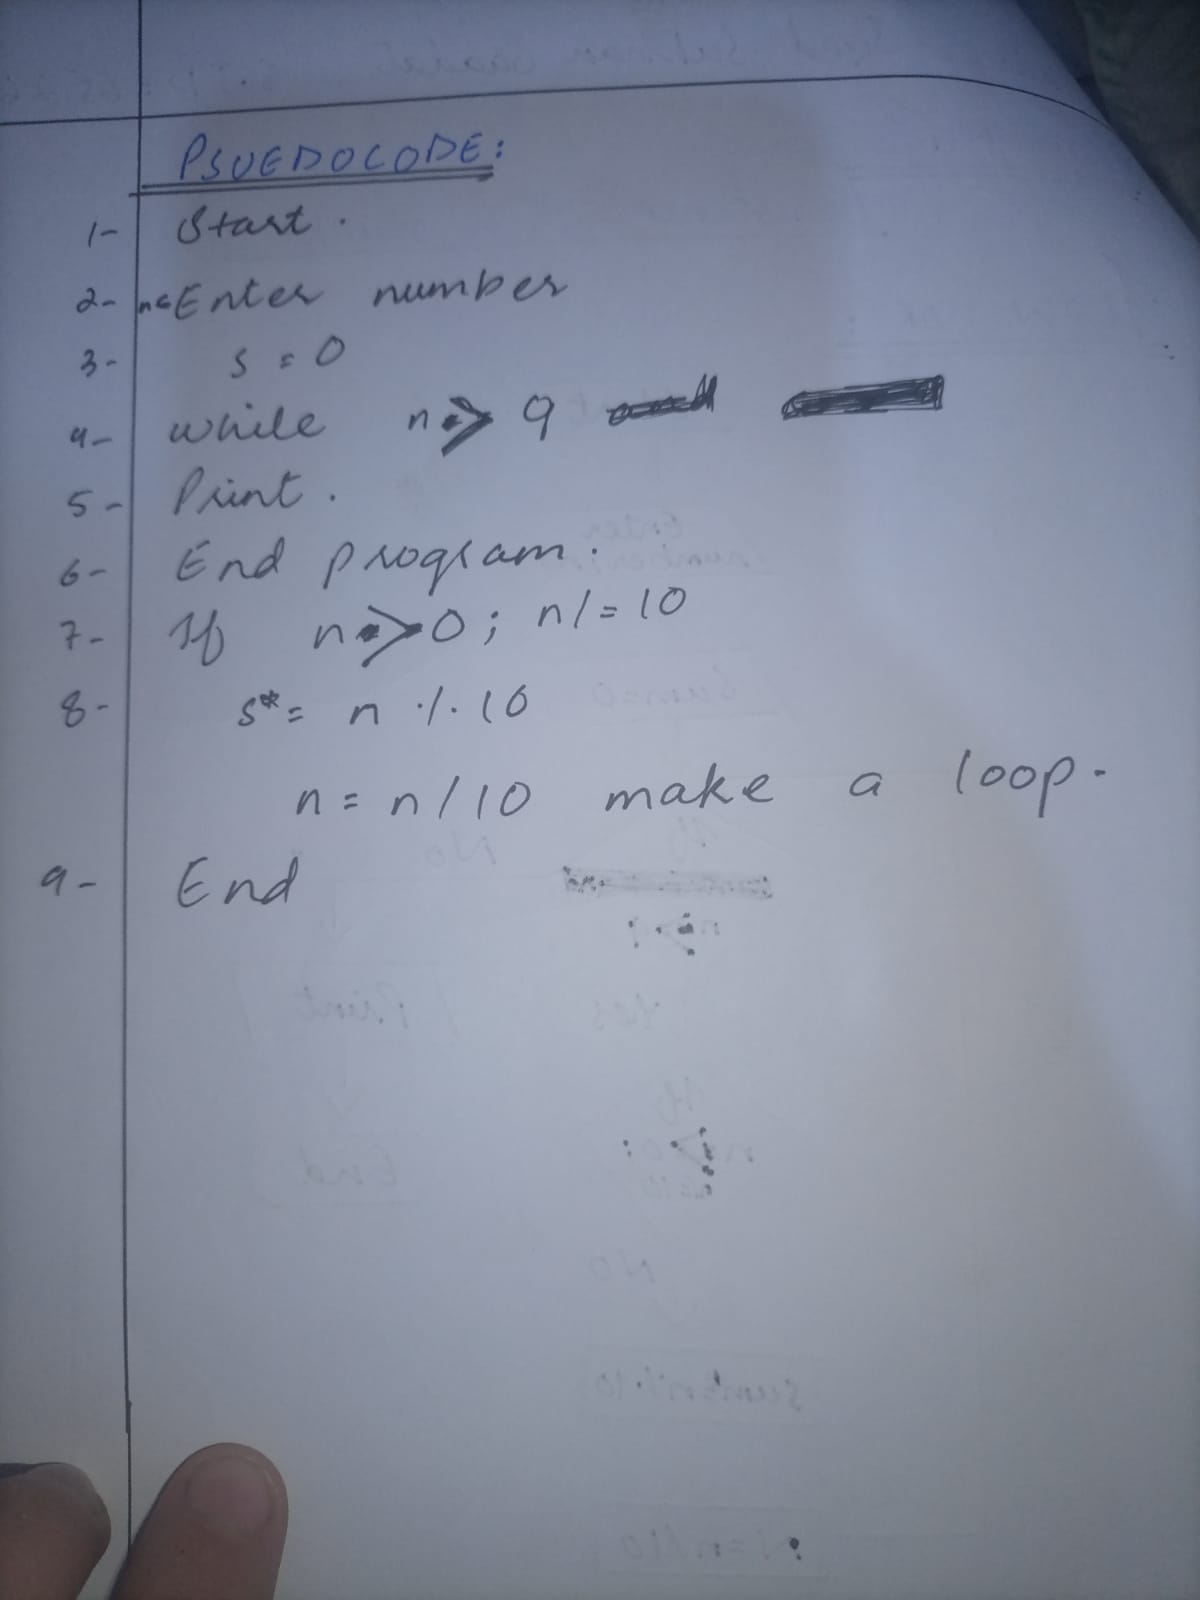 PSUEDOCODE:
1- Start.
2- n= Enter number
3- s = 0
4- while n > 9
5- Print.
6- End program.
7- If n > 0; n/=10
8- s*= n % 10
n = n/10 make a loop.
9- End